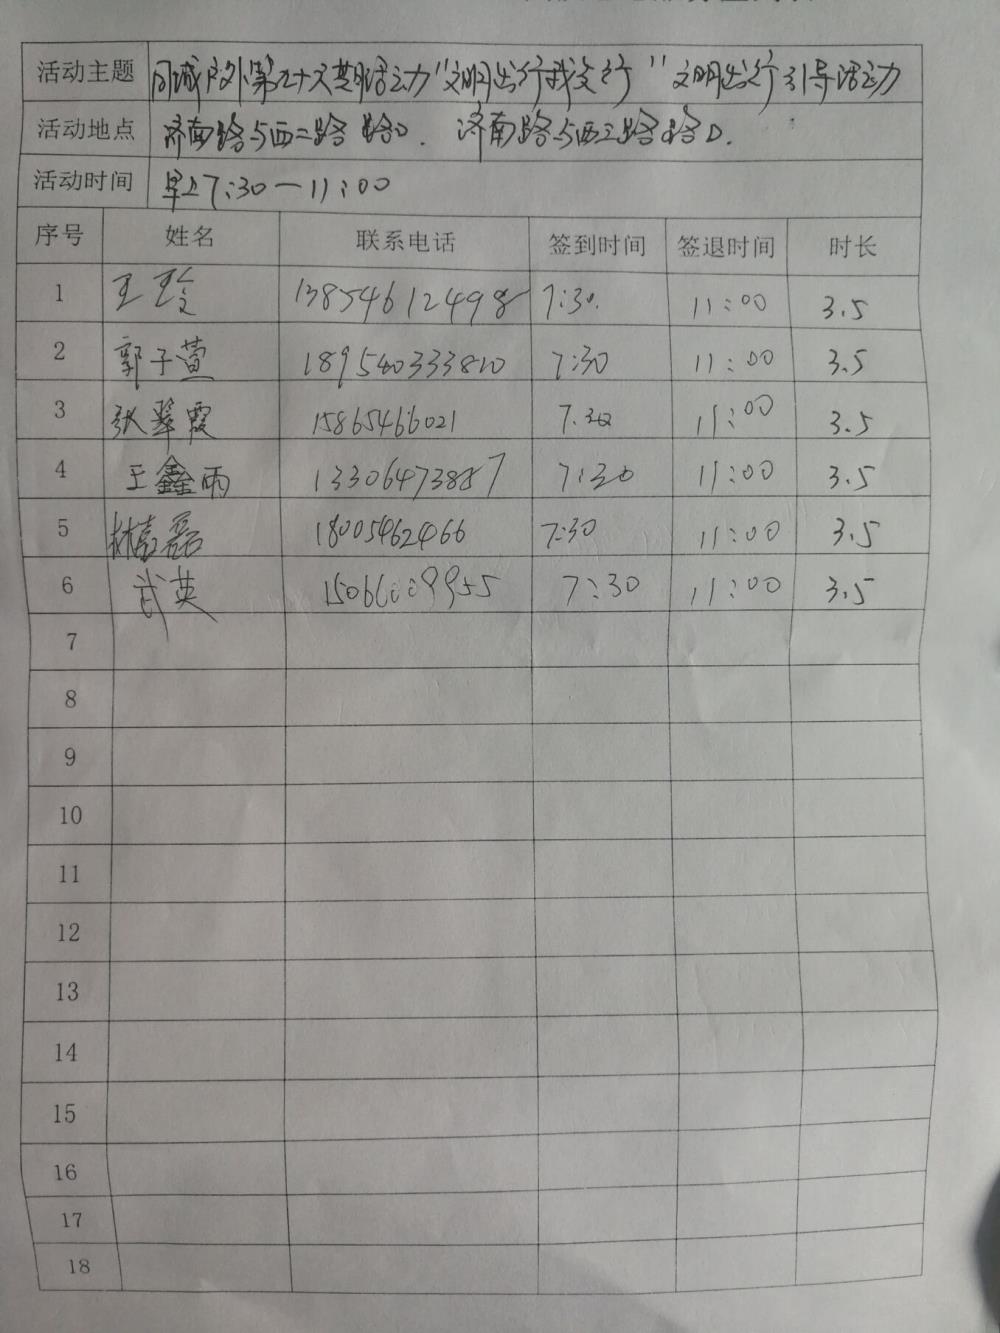 活动主题 同城户外第九十六期活动"文明出行我先行"文明出行引导活动
活动地点 济南路与西二路路口. 济南路与西三路路口.
活动时间 早上7:30—11:00
序号 姓名 联系电话 签到时间 签退时间 时长
1 王玲 13854612498 7:30 11:00 3.5
2 郭子萱 7:30 11:00 3.5
3 张翠霞 15865466021 7:30 11:00 3.5
4 王鑫雨 13306473887 7:30 11:00 3.5
5 林嘉磊 18005462466 7:30 11:00 3.5
6 武英 15066009955 7:30 11:00 3.5
7
8
9
10
11
12
13
14
15
16
17
18